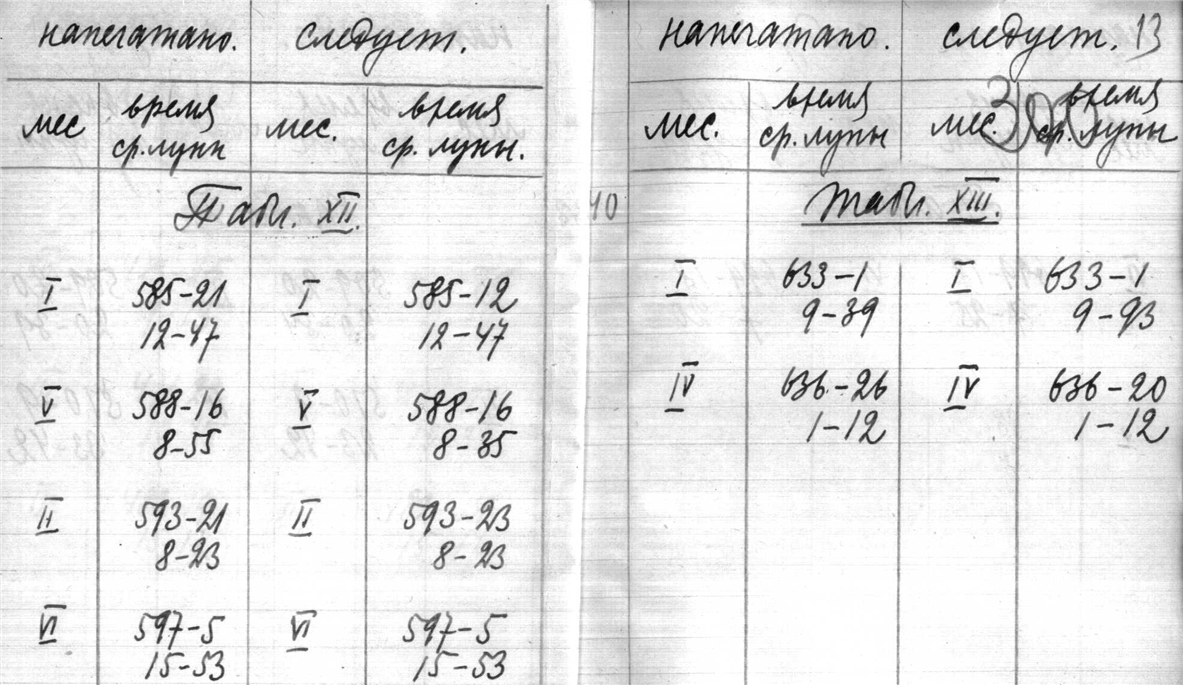 напечатано. следует.
мес время ср. луны мес. время ср. луны.
Табл. XII.
I 585-21 I 585-12
12-47 12-47
V 588-16 V 588-16
8-55 8-35
II 593-21 II 593-23
8-23 8-23
VI 597-5 VI 597-5
15-53 15-53
напечатано. следует. 13
мес. время ср. луны мес. время ср. луны
10
Табл. XIII.
I 633-1 I 633-1
9-39 9-93
IV 636-26 IV 636-20
1-12 1-12